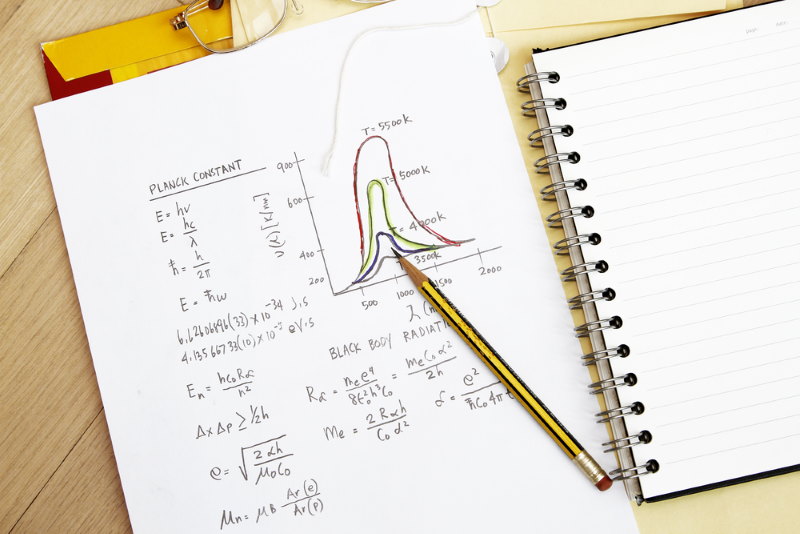 PLANCK CONSTANT
E = hν
E = hc/λ
ħ = h/2π
E = ħω
6.62606896(33)×10⁻³⁴ J.s
4.13566733(10)×10⁻⁵ eV.s
Eₙ = hc₀R∝/n²
Δx Δp ≥ ½h
e = √(2αh/μ₀c₀)
μₙ = μB Ar(e)/Ar(p)
T = 5500K
T = 5000K
T = 4000K
3500K
900
600
400
200
500
1000
1500
2000
λ
BLACK BODY
R∝ = mₑe⁴/8ε₀²h³c₀ = mₑc₀α²/2h
Me = 2R∝h/c₀α²
α = e²/ħc₀4π